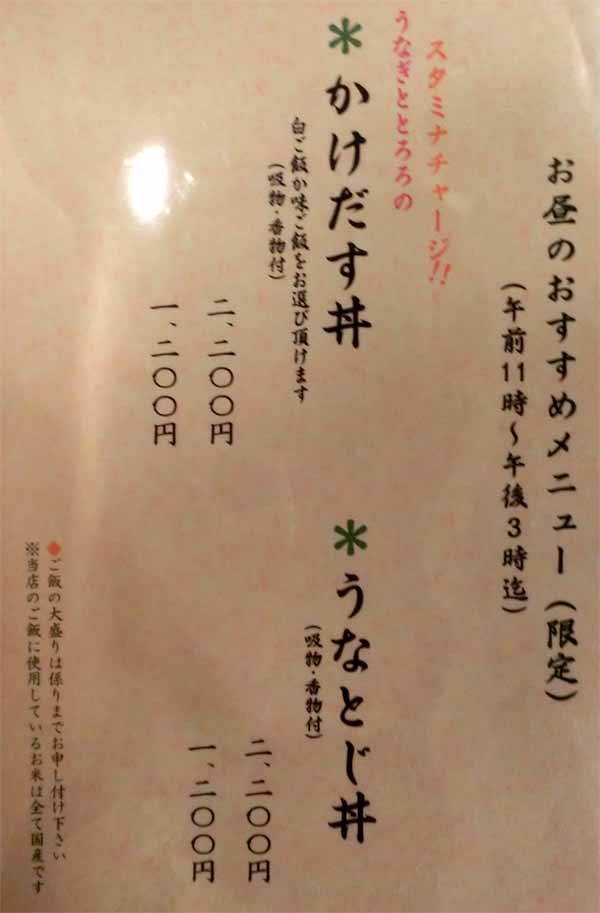 お昼のおすすめメニュー（限定）
（午前11時～午後3時迄）
スタミナチャージ!!
うなぎととろろの
＊かけだす丼
白ご飯か味ご飯をお選び頂けます
（吸物・香物付）
二、二〇〇円
一、二〇〇円
＊うなとじ丼
（吸物・香物付）
二、二〇〇円
一、二〇〇円
◆ご飯の大盛りは係りまでお申し付け下さい
※当店のご飯に使用しているお米は全て国産です